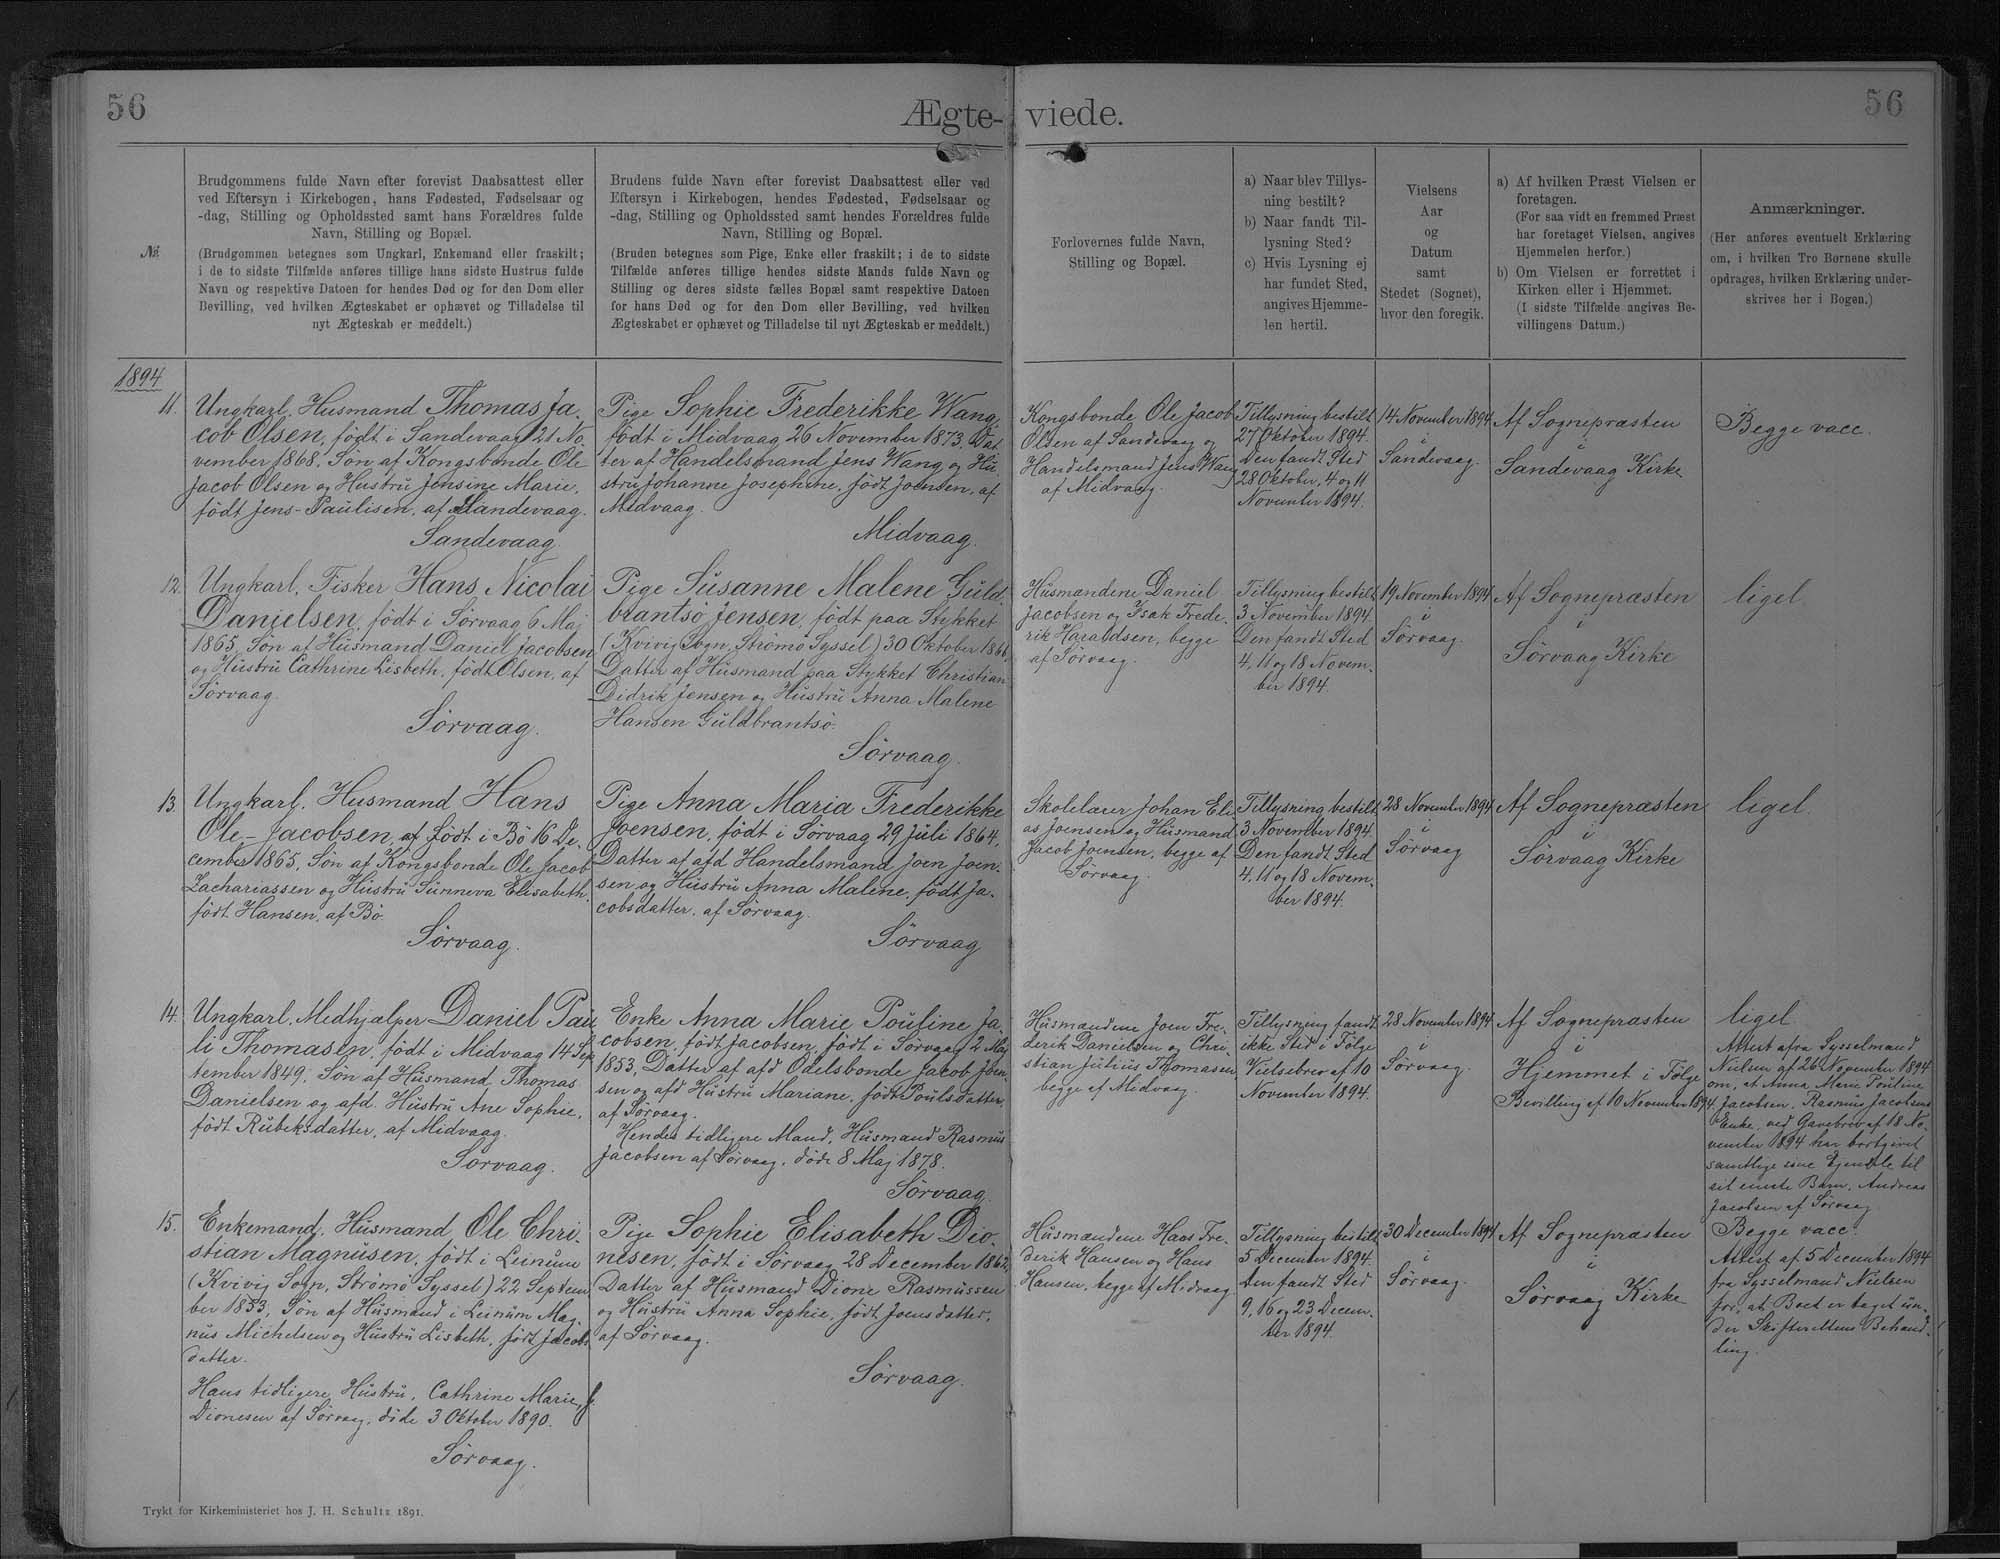 56
Ægte-
viede.
56
№
Brudgommens fulde Navn efter forevist Daabsattest eller
ved Eftersyn i Kirkebogen, hans Fødested, Fødselsaar og
-dag, Stilling og Opholdssted samt hans Forældres fulde
Navn, Stilling og Bopæl.
(Brudgommen betegnes som Ungkarl, Enkemand eller fraskilt;
i de to sidste Tilfælde anføres tillige hans sidste Hustrus fulde
Navn og respektive Datoen for hendes Død og for den Dom eller
Bevilling, ved hvilken Ægteskabet er ophævet og Tilladelse til
nyt Ægteskab er meddelt.)
Brudens fulde Navn efter forevist Daabsattest eller ved
Eftersyn i Kirkebogen, hendes Fødested, Fødselsaar og
-dag, Stilling og Opholdssted samt hendes Forældres fulde
Navn, Stilling og Bopæl.
(Bruden betegnes som Pige, Enke eller fraskilt; i de to sidste
Tilfælde anføres tillige hendes sidste Mands fulde Navn og
Stilling og deres sidste fælles Bopæl samt respektive Datoen
for hans Død og for den Dom eller Bevilling, ved hvilken
Ægteskabet er ophævet og Tilladelse til nyt Ægteskab er meddelt.)
Forlovernes fulde Navn,
Stilling og Bopæl.
a) Naar blev Tillys-
ning bestilt?
b) Naar fandt Til-
lysning Sted?
c) Hvis Lysning ej
har fundet Sted,
angives Hjemme-
len hertil.
Vielsens
Aar
og
Datum
samt
Stedet (Sognet),
hvor den foregik.
a) Af hvilken Præst Vielsen er
foretagen.
(For saa vidt en fremmed Præst
har foretaget Vielsen, angives
Hjemmelen herfor.)
b) Om Vielsen er forrettet i
Kirken eller i Hjemmet.
(I sidste Tilfælde angives Be-
villingens Datum.)
Anmærkninger.
(Her anføres eventuelt Erklæring
om, i hvilken Tro Børnene skulle
opdrages, hvilken Erklæring under-
skrives her i Bogen.)
1894
11.
Ungkarl, Husmand Thomas Ja-
cob Olsen, født i Sandevaag 21 No-
vember 1868, Søn af Kongsbonde Ole
Jacob Olsen og Hustru Jensine Marie,
født Jens-Paulisen, af Sandevaag.
Sandevaag.
Pige Sophie Frederikke Wang,
født i Midvaag 26 November 1873, Dat-
ter af Handelsmand Jens Wang og Hu-
stru Johanne Josephine, født Joensen, af
Midvaag.
Midvaag.
Kongsbonde Ole Jacob
Olsen af Sandevaag og
Handelsmand Jens Wang
af Midvaag.
Tillysning bestilt
27 Oktober 1894.
Den fandt Sted
28 Oktober, 4 og 11
November 1894.
14 November 1894
i
Sandevaag.
Af Sognepræsten
i
Sandevaag Kirke
Begge vacc.
12.
Ungkarl, Fisker Hans Nicolai
Danielsen, født i Sörvaag 6 Maj
1865, Søn af Husmand Daniel Jacobsen
og Hustru Cathrine Lisbeth, født Olsen, af
Sörvaag.
Sörvaag.
Pige Susanne Malene Guld-
brantsö Jensen, født paa Stykket
(Kvivig Sogn, Strömö Syssel) 30 Oktober
Datter af Husmand paa Stykket Christian
Didrik Jensen og Hustru Anna Malene
Hansen Guldbrantsö.
Sörvaag.
Husmandene Daniel
Jacobsen og Ysak Frede-
rik Haraldsen, begge
af Sörvaag.
Tillysning bestilt
3 November 1894.
Den fandt Sted
4, 11 og 18 Novem-
ber 1894.
19 November 1894
i
Sörvaag.
Af Sognepræsten
i
Sörvaag Kirke
ligel.
13.
Ungkarl, Husmand Hans
Ole-Jacobsen, af født i Bö 16 De-
cember 1865, Søn af Kongsbonde Ole Jacob
Zachariassen og Hustru Sunneva Elisabeth,
født Hansen, af Bö.
Sörvaag.
Pige Anna Maria Frederikke
Joensen, født i Sörvaag 29 Juli 1864,
Datter af afd Handelsmand Joen Joen-
sen og Hustru Anna Malene, født Ja-
cobsdatter, af Sörvaag.
Sörvaag
Skolelærer Johan Eli-
as Joensen og Husmand
Jacob Joensen, begge af
Sörvaag.
Tillysning bestilt
3 November 1894.
Den fandt Sted
4, 11 og 18 Novem-
ber 1894.
28 November 1894
i
Sörvaag
Af Sognepræsten
i
Sörvaag Kirke
ligel.
14.
Ungkarl, Medhjælper Daniel Pau-
li Thomasen, født i Midvaag 14 Sep-
tember 1849, Søn af Husmand Thomas
Danielsen og afd. Hustru Ane Sophie,
født Rubeksdatter, af Midvaag.
Sörvaag.
Enke Anna Marie Pouline Ja-
cobsen, født Jacobsen, født i Sörvaag 2 Maj
1853, Datter af afd Odelsbonde Jacob Joen-
sen og afd Hustru Mariane, født Poulsdatter,
af Sörvaag.
Hendes tidligere Mand, Husmand Rasmus
Jacobsen af Sörvaag, døde 8 Maj 1878.
Sörvaag.
Husmandene Joen Fre-
derik Danielsen og Chri-
stian Julius Thomasen,
begge af Midvaag.
Tillysning fandt
ikke Sted i Følge
Vielsebrev af 10
November 1894.
28 November 1894
i
Sörvaag.
Af Sognepræsten
i
Hjemmet i Følge
Bevilling af 10 November 1894.
ligel.
Attest afra Sysselmand
Nielsen af 26 November 1894
om, at Anna Marie Pouline
Jacobsen, Rasmus Jacobsens
Enke, ved Gavebrev af 18 No-
vember 1894 har bortgivet
samtlige sine Ejendele til
sit eneste Barn, Andreas
Jacobsen af Sörvaag.
15.
Enkemand, Husmand Ole Chri-
stian Magnusen, født i Leinum
(Kvivig Sogn, Strömö Syssel) 22 Septem-
ber 1853, Søn af Husmand i Leinum Mag-
nus Michelsen og Hustru Lisbeth, født Jacobs-
datter.
Hans tidligere Hustru, Cathrine Marie, f.
Dionesen af Sörvaag, döde 3 Oktober 1890.
Sörvaag.
Pige Sophie Elisabeth Dio-
nesen, født i Sörvaag 28 December 1862,
Datter af Husmand Dione Rasmussen
og Hustru Anna Sophie, født Joensdatter,
af Sörvaag.
Sörvaag.
Husmandene Hans Fre-
derik Hansen og Hans
Hansen, begge af Midvaag.
Tillysning bestilt
5 December 1894.
Den fandt Sted
9, 16 og 23 Decem-
ber 1894.
30 December 1894
i
Sörvaag.
Af Sognepræsten
i
Sörvaag Kirke
Begge vacc.
Attest af 5 December 1894
fra Sysselmand Nielsen
for, at Boet er taget un-
der Skifterettens Behand-
ling.
Trykt for Kirkeministeriet hos J. H. Schultz 1891.